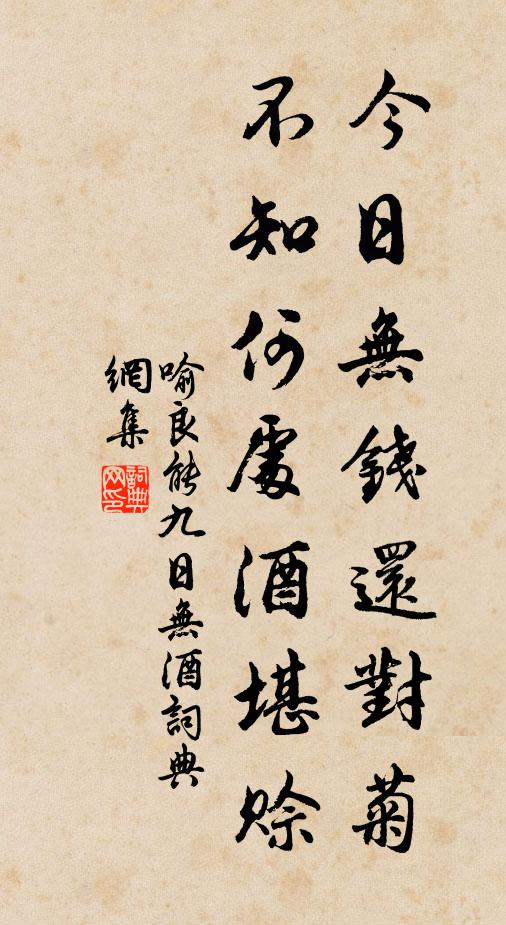 今日無錢還對菊
不知何處酒堪賒
喻良能九日無酒詞典
網集
詞典
网印